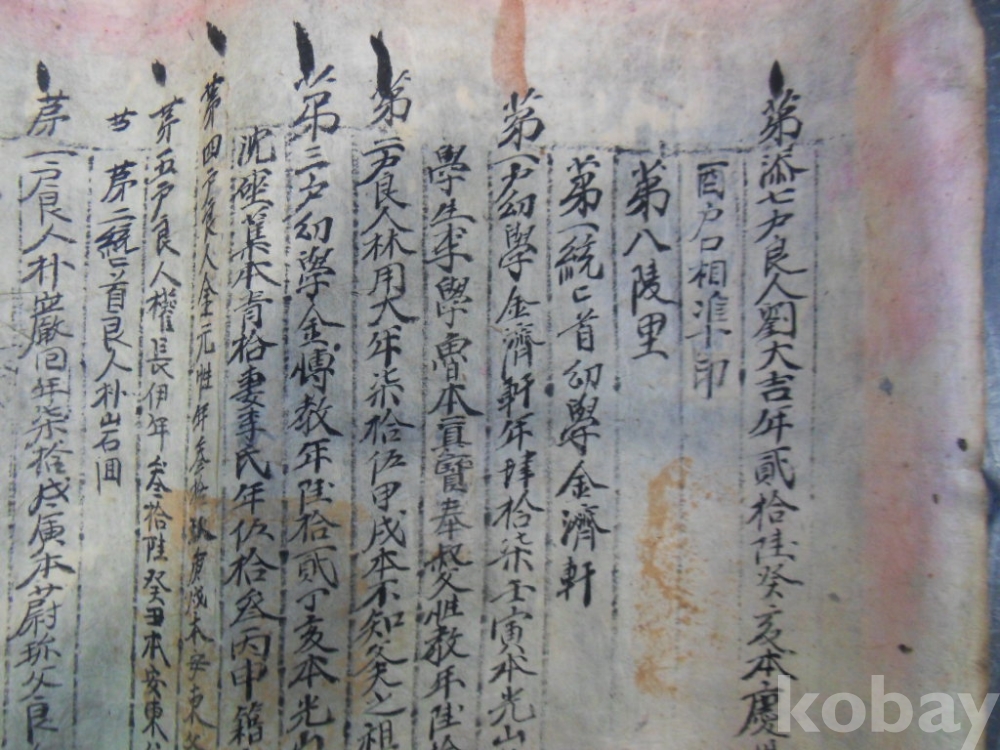 第添七戶良人劉大吉年貳拾陸癸亥本慶
酉戶口相準印
第八陵里
第一統〻首幼學金濟軒
第一戶幼學金濟軒年肆拾柒壬寅本光山
學生李學魯本眞寶奉叔父惟敎年陸拾
第二戶良人林用大年柒拾伍甲戌本不知父之祖
第三戶幼學金愽敎年陸拾貳丁亥本光山
沈 本靑拾妻李氏年伍拾叄丙申籍
第四戶良人金元性年叁拾玖庚戌本安東父
第五戶良人權長伊年叄拾陸癸丑本安東父
第二統〻首良人朴山石回
第一戶良人朴岩嚴回年柒拾戊寅本蔚珎父良
kobay